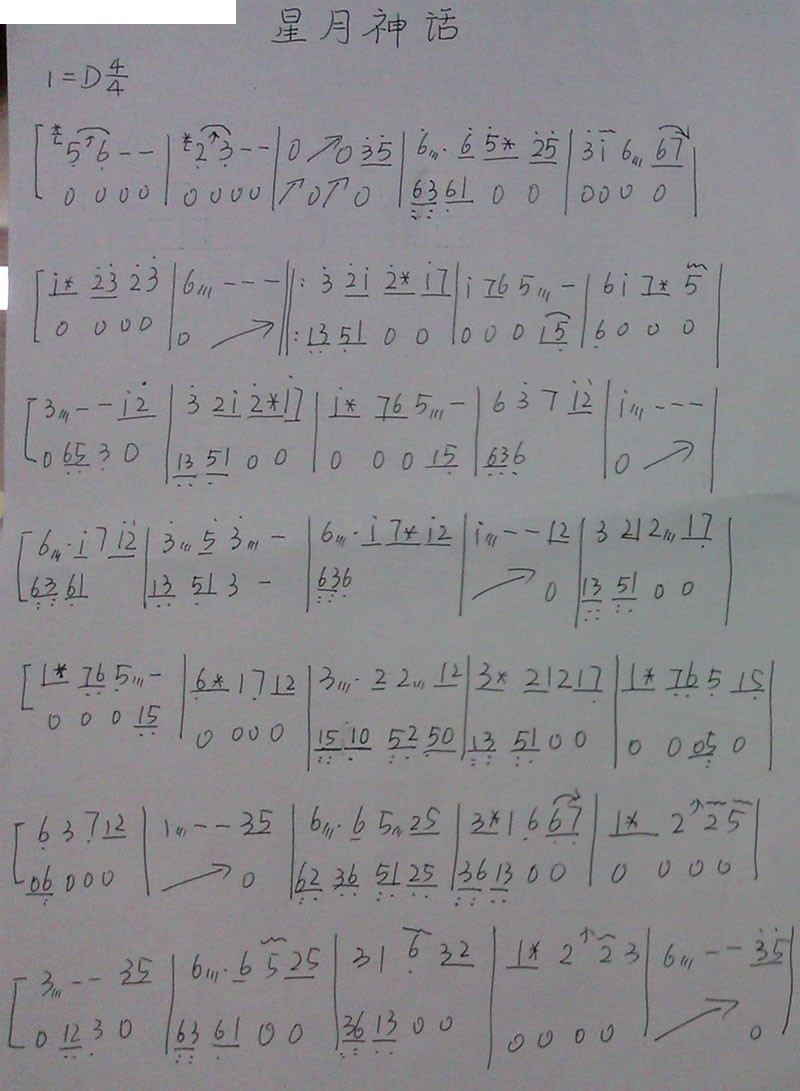 星月神话
1=D 4/4
5 6 - - | 2 3 - - | 0 ↗ 0 35 | 6,,,· 6 5* 25 | 31 6,,, 67 |
0 0 0 0 | 0 0 0 0 | ↗ 0 ↗ 0 | 63 61 0 0 | 0 0 0 0 |
1* 23 23 | 6,,, - - - ||: 3 21 2* 17 | 1 76 5,,, - | 6 1 7* 5 |
0 0 0 0 | 0 ↗ ||: 13 51 0 0 | 0 0 0 15 | 6 0 0 0 |
3,,, - - 12 | 3 21 2* 17 | 1* 76 5,,, - | 6 3 7 12 | 1,,, - - - |
0 65 3 0 | 13 51 0 0 | 0 0 0 15 | 636 | 0 ↗ |
6,,,· 1 7 12 | 3,,, 5 3,,, - | 6,,,· 1 7* 12 | 1,,, - - 12 | 3 21 2,,, 17 |
63 61 | 13 51 3 - | 636 | ↗ 0 | 13 51 0 0 |
1* 76 5,,, - | 6* 1 7 12 | 3,,,· 2 2,,, 12 | 3* 21 2 17 | 1* 76 5 15 |
0 0 0 15 | 0 0 0 0 | 15 10 52 50 | 13 51 0 0 | 0 0 05 0 |
6 3 7 12 | 1,,, - - 35 | 6,,,· 6 5,, 25 | 3* 1 6 67 | 1* 2 ↗ 2 5 |
06 0 0 0 | ↗ 0 | 62 36 51 25 | 36 13 0 0 | 0 0 0 0 |
3,,, - - 35 | 6,,,· 6 5 25 | 3 1 6 32 | 1* 2 ↗ 2 3 | 6,,, - - 35 |
0 12 3 0 | 63 61 0 0 | 36 13 0 0 | 0 0 0 0 | ↗ 0 |